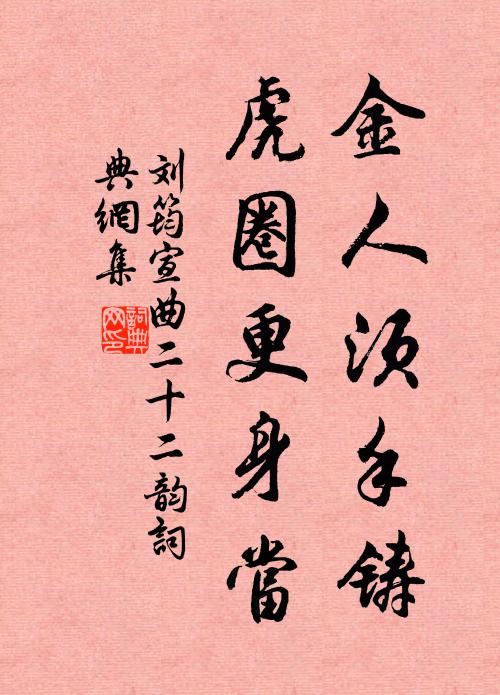 金人须手铸
虎圈更身當
刘筠宣曲二十二韵詞
典網集
詞典网印